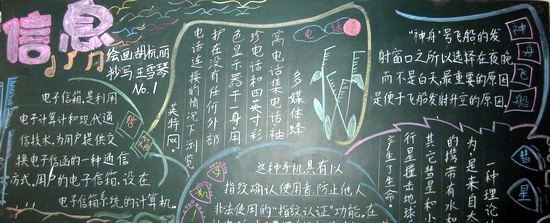 信息
绘画胡杭丽
抄写王雪琴
No.1
电子信箱,是利用
电子计算计和现代通
信技术,为用户提供交
换电子信函的一种通信
方式,用户的电子信箱,设在
电子信箱系统的计算机。
多媒体蜂
离电话集电话袖
珍电话和四英寸彩
色显示器于一身,用
护在没有任何外部
电话连接的情况下浏览
英特网。
电
信
这种手机具有以
指纹确认使用者,防止他人
非法使用的“指纹认证”功能,在
“神舟”号飞船的发
射窗口之所以选择在夜晚
而不是白天最重要的原因
是便于飞船发射升空的原因
神舟飞船
彗星
一种理论
为是来自太
的携带有水和
其它彗星和
行星撞击地球
产生了生命